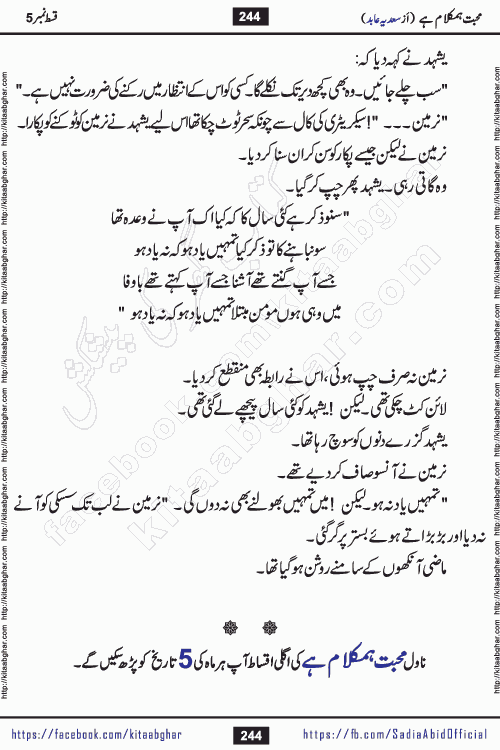 محبت ہمکلام ہے (از سعدیہ عابد)
244
قسط نمبر 5
یشہد نے کہہ دیا کہ:
"سب چلے جائیں۔ وہ بھی کچھ دیر تک نکلے گا۔ کسی کو اس کے انتظار میں رکنے کی ضرورت نہیں ہے۔"
"نرمین۔۔۔ "! سیکریٹری کی کال سے چونکہ سحر ٹوٹ چکا تھا اس لیے یشہد نے نرمین کو ٹوکنے کو پکارا۔
نرمین نے لیکن جیسے پکار کو سن کر ان سنا کر دیا۔
وہ گاتی رہی۔ یشہد پھر چپ کر گیا۔
"سنو ذکر ہے کئی سال کا کہ کیا اک آپ نے وعدہ تھا
سو نباہنے کا تو ذکر کیا تمہیں یاد ہو کہ نہ یاد ہو
جسے آپ گنتے تھے آشنا جسے آپ کہتے تھے باوفا
میں وہی ہوں مومن مبتلا تمہیں یاد ہو کہ نہ یاد ہو "
نرمین نہ صرف چپ ہوئی، اس نے رابطہ بھی منقطع کر دیا۔
لائن کٹ چکی تھی۔ لیکن ! یشہد کو کئی سال پیچھے لے گئی تھی۔
یشہد گزرے دنوں کو سوچ رہا تھا۔
نرمین نے آنسو صاف کر دیے تھے۔
"تمہیں یاد نہ ہو۔ لیکن ! میں تمہیں بھولنے بھی نہ دوں گی۔ "نرمین نے لب تک سسکی کو آنے
نہ دیا اور بڑبڑاتے ہوئے بستر پر گر گئی۔
ماضی آنکھوں کے سامنے روشن ہو گیا تھا۔
ناول محبت ہمکلام ہے کی اگلی اقساط آپ ہر ماہ کی 5 تاریخ کو پڑھ سکیں گے۔
https://facebook.com/kitaabghar
244
https://fb.com/SadiaAbidOfficial
http://kitaabghar.com
کتاب گھر کی پیشکش
facebook.com/kitaabghar
kitaabghar.com